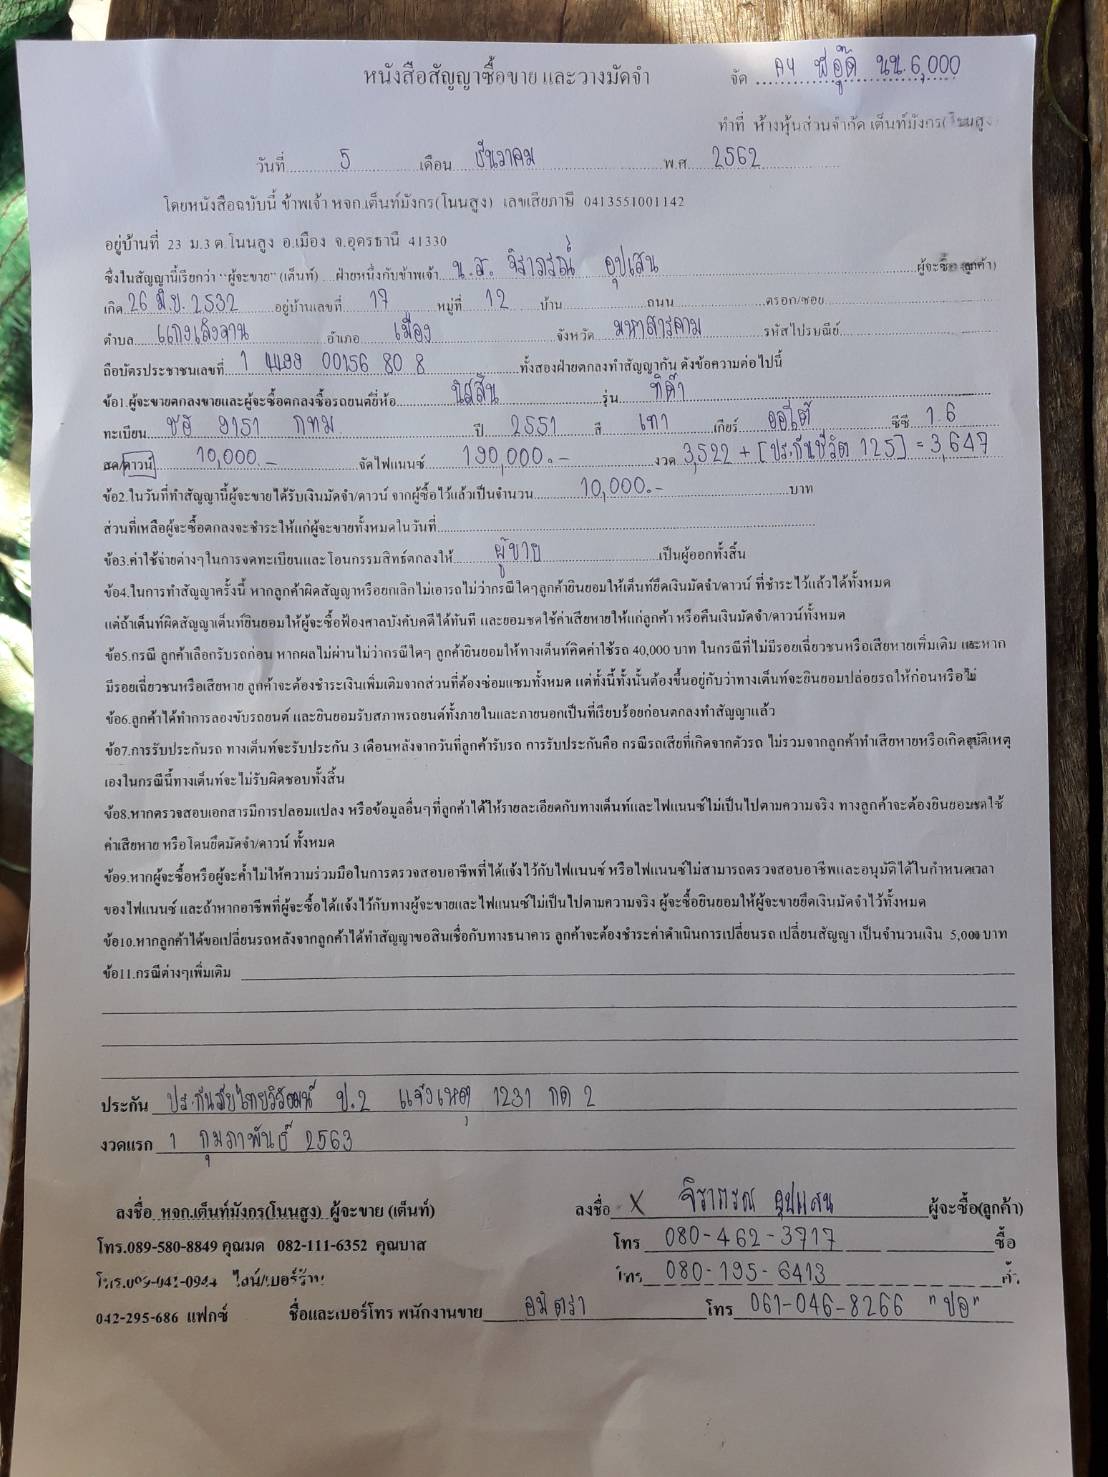 หนังสือสัญญาซื้อขาย และวางมัดจำ
จัด AY พี่อู๊ด นน.6,000
ทำที่ ห้างหุ้นส่วนจำกัด เต็นท์มังกร(โนนสูง
วันที่ 5 เดือน ธันวาคม พ.ศ 2562
โดยหนังสือฉบับนี้ ข้าพเจ้า หจก.เต็นท์มังกร(โนนสูง) เลขเสียภาษี 0413551001142
อยู่บ้านที่ 23 ม.3 ต.โนนสูง อ.เมือง จ.อุดรธานี 41330
ซึ่งในสัญญานี้เรียกว่า "ผู้จะขาย" (เต็นท์) ฝ่ายหนึ่งกับข้าพเจ้า น.ส. จิราภรณ์ อุปแสน ผู้จะซื้อ (ลูกค้า)
เกิด 26 มิ.ย. 2532 อยู่บ้านเลขที่ 17 หมู่ที่ 12 บ้าน ถนน ตรอก/ซอย
ตำบล แก่งเลิงจาน อำเภอ เมือง จังหวัด มหาสารคาม รหัสไปรษณีย์
ถือบัตรประชาชนเลขที่ 1 00156 80 8 ทั้งสองฝ่ายตกลงทำสัญญากัน ดังข้อความต่อไปนี้
ข้อ1.ผู้จะขายตกลงขายและผู้จะซื้อตกลงซื้อรถยนต์ยี่ห้อ นิสสัน รุ่น ทิด้า
ทะเบียน ชฮ 9151 กทม ปี 2551 สี เทา เกียร์ ออโต้ ซีซี 1.6
สด/ดาวน์ 10,000.- จัดไฟแนนซ์ 190,000.- งวด 3,522 + [ประกันชีวิต 125] = 3,647
ข้อ2.ในวันที่ทำสัญญานี้ผู้จะขายได้รับเงินมัดจำ/ดาวน์ จากผู้ซื้อไว้แล้วเป็นจำนวน 10,000.- บาท
ส่วนที่เหลือผู้จะซื้อตกลงจะชำระให้แก่ผู้จะขายทั้งหมดในวันที่
ข้อ3.ค่าใช้จ่ายต่างๆในการจดทะเบียนและโอนกรรมสิทธ์ตกลงให้ ผู้ขาย เป็นผู้ออกทั้งสิ้น
ข้อ4.ในการทำสัญญาครั้งนี้ หากลูกค้าผิดสัญญาหรือยกเลิกไม่เอารถไม่ว่ากรณีใดๆลูกค้ายินยอมให้เต็นท์ยึดเงินมัดจำ/ดาวน์ ที่ชำระไว้แล้วได้ทั้งหมด
แต่ถ้าเต็นท์ผิดสัญญาเต็นท์ยินยอมให้ผู้จะซื้อฟ้องศาลบังคับคดีได้ทันที และยอมชดใช้ค่าเสียหายให้แก่ลูกค้า หรือคืนเงินมัดจำ/ดาวน์ทั้งหมด
ข้อ5.กรณี ลูกค้าเลือกรับรถก่อน หากผลไม่ผ่านไม่ว่ากรณีใดๆ ลูกค้ายินยอมให้ทางเต็นท์คิดค่าใช้รถ 40,000 บาท ในกรณีที่ไม่มีรอยเฉี่ยวชนหรือเสียหายเพิ่มเติม และหาก
มีรอยเฉี่ยวชนหรือเสียหาย ลูกค้าจะต้องชำระเงินเพิ่มเติมจากส่วนที่ต้องซ่อมแซมทั้งหมด แต่ทั้งนี้ทั้งนั้นต้องขึ้นอยู่กับว่าทางเต็นท์จะยินยอมปล่อยรถให้ก่อนหรือไม่
ข้อ6.ลูกค้าได้ทำการลองขับรถยนต์ และยินยอมรับสภาพรถยนต์ทั้งภายในและภายนอกเป็นที่เรียบร้อยก่อนตกลงทำสัญญาแล้ว
ข้อ7.การรับประกันรถ ทางเต็นท์จะรับประกัน 3 เดือนหลังจากวันที่ลูกค้ารับรถ การรับประกันคือ กรณีรถเสียที่เกิดจากตัวรถ ไม่รวมจากลูกค้าทำเสียหายหรือเกิดอุบัติเหตุ
เองในกรณีนี้ทางเต็นท์จะไม่รับผิดชอบทั้งสิ้น
ข้อ8.หากตรวจสอบเอกสารมีการปลอมแปลง หรือข้อมูลอื่นๆที่ลูกค้าได้ให้รายละเอียดกับทางเต็นท์และไฟแนนซ์ไม่เป็นไปตามความจริง ทางลูกค้าจะต้องยินยอมชดใช้
ค่าเสียหาย หรือโดนยึดมัดจำ/ดาวน์ ทั้งหมด
ข้อ9.หากผู้จะซื้อหรือผู้จะค้ำไม่ให้ความร่วมมือในการตรวจสอบอาชีพที่ได้แจ้งไว้กับไฟแนนซ์ หรือไฟแนนซ์ไม่สามารถตรวจสอบอาชีพและอนุมัติได้ในกำหนดเวลา
ของไฟแนนซ์ และถ้าหากอาชีพที่ผู้จะซื้อได้แจ้งไว้กับทางผู้จะขายและไฟแนนซ์ไม่เป็นไปตามความจริง ผู้จะซื้อยินยอมให้ผู้จะขายยึดเงินมัดจำไว้ทั้งหมด
ข้อ10.หากลูกค้าได้ขอเปลี่ยนรถหลังจากลูกค้าได้ทำสัญญาขอสินเชื่อกับทางธนาคาร ลูกค้าจะต้องชำระค่าดำเนินการเปลี่ยนรถ เปลี่ยนสัญญา เป็นจำนวนเงิน 5,000 บาท
ข้อ11.กรณีต่างๆเพิ่มเติม
ประกัน ประกันภัยไทยวิวัฒน์ ป.2 แจ้งเหตุ 1231 กด 2
งวดแรก 1 กุมภาพันธ์ 2563
ลงชื่อ หจก.เต็นท์มังกร(โนนสูง) ผู้จะขาย (เต็นท์) ลงชื่อ X จิราภรณ์ อุปแสน ผู้จะซื้อ(ลูกค้า)
โทร.089-580-8849 คุณมด 082-111-6352 คุณบาส โทร 080-462-3717 ซื้อ
โทร. -041-0944 ไลน์/เบอร์ร้าน โทร 080-195-6413 ค้ำ
042-295-686 แฟกซ์ ชื่อและเบอร์โทร พนักงานขาย อมิตรา โทร 061-046-8266 "ปอ"